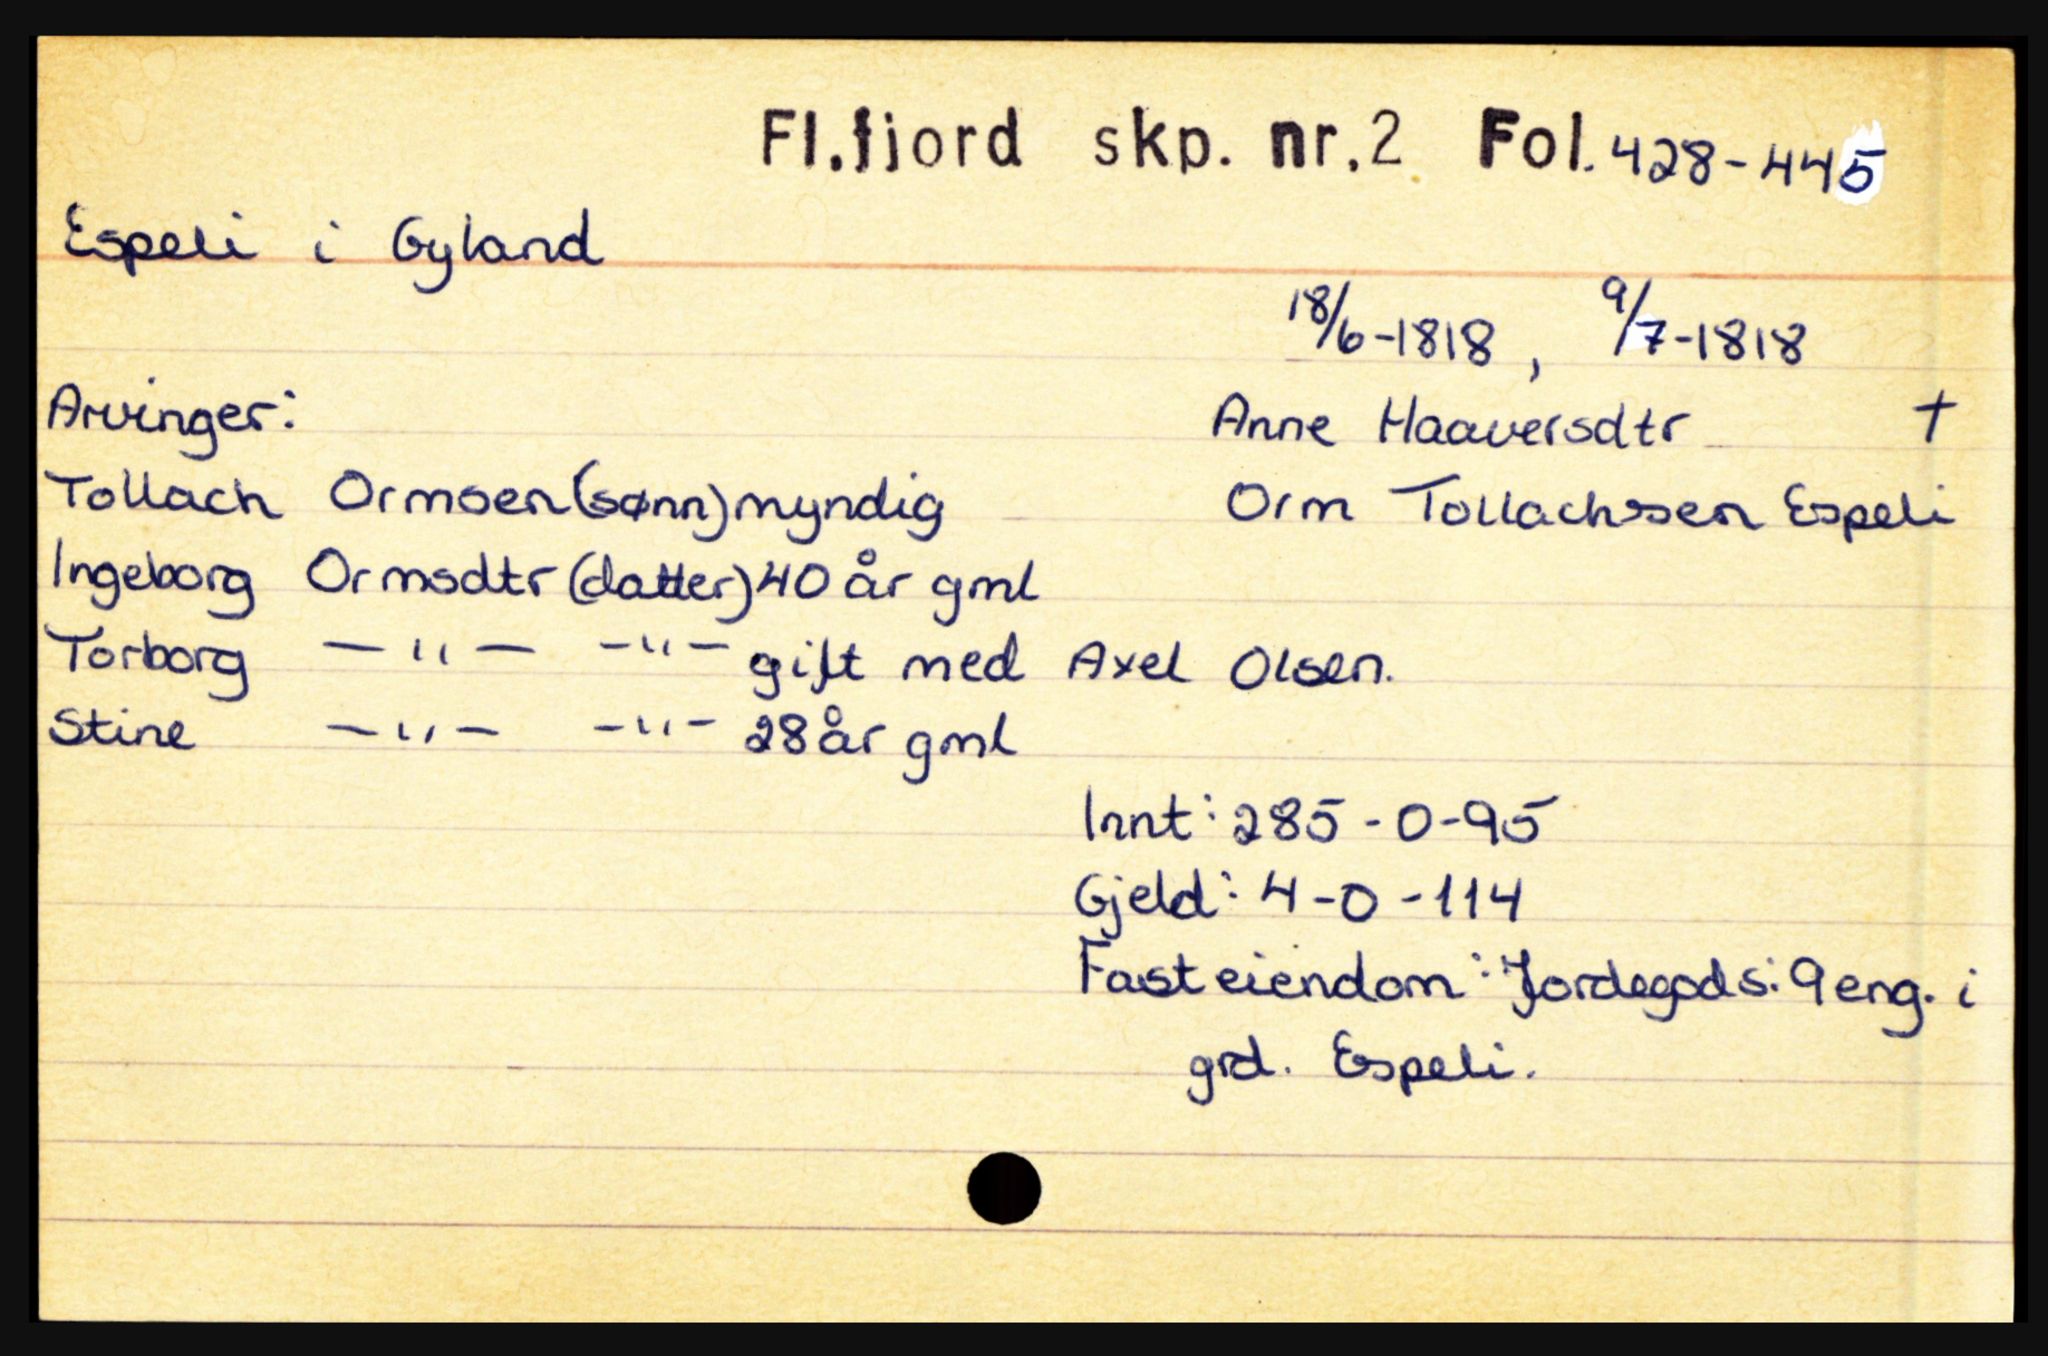 Fl.fjord skp. nr.2 Fol. 428-445
Espeli i Gyland
18/6-1818, 9/7-1818
Arvinger: Anne Haaversdtr †
Tollach Ormsen (sønn) myndig Orm Tollachsen Espeli
Ingeborg Ormsdtr (datter) 40 år gml
Torborg —"— —"— gift med Axel Olsen.
Stine —"— —"— 28 år gml
Innt: 285-0-95
Gjeld: 4-0-114
Fast eiendom: Jordegods: 9 eng. i
grd. Espeli.